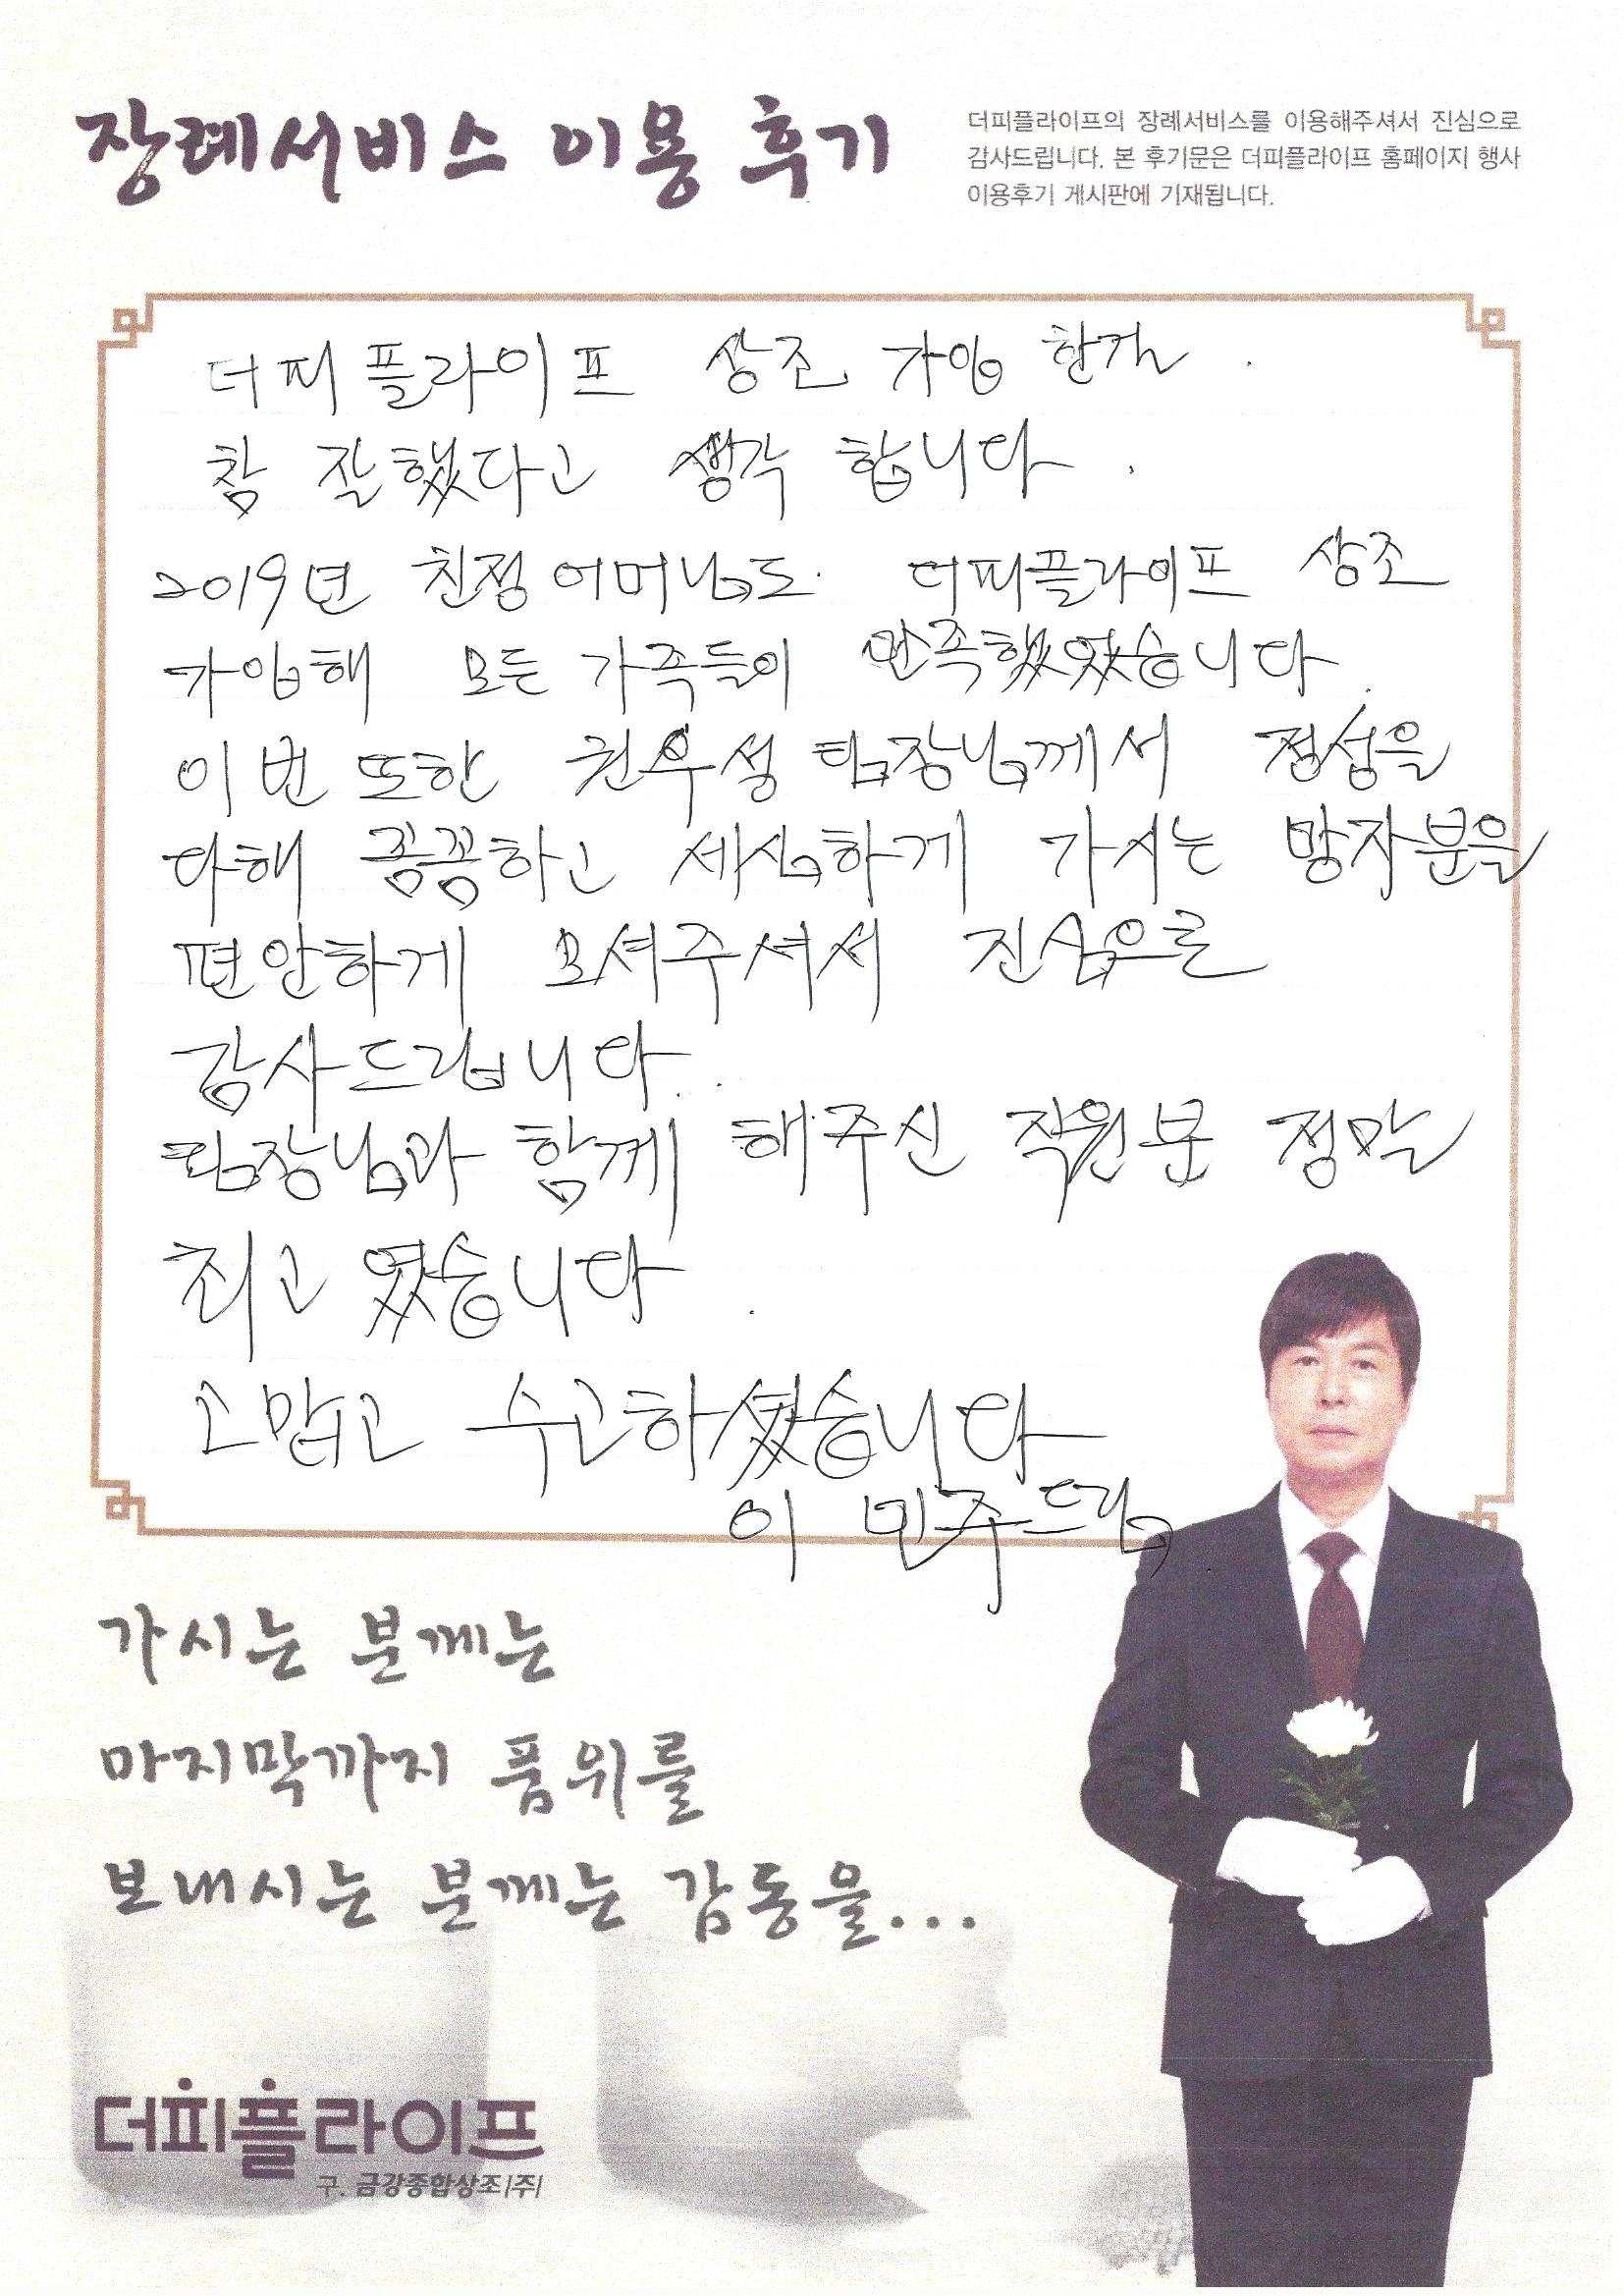 장례서비스 이용 후기
더피플라이프의 장례서비스를 이용해주셔서 진심으로
감사드립니다. 본 후기문은 더피플라이프 홈페이지 행사
이용후기 게시판에 기재됩니다.
더피플라이프 상조 가입 한걸.
참 잘했다고 생각 합니다.
2019년 친정어머님도 더피플라이프 상조
가입해 모든 가족들이 만족했었습니다.
이번 또한 권우성 팀장님께서 정성을
다해 꼼꼼하고 세심하게 가시는 망자분을
편안하게 모셔주셔서 진심으로
감사드립니다..
팀장님과 함께 해주신 직원분 정말
최고 였습니다.
고맙고 수고하셨습니다
이 민주드림
가시는 분께는
마지막까지 품위를
보내시는 분께는 감동을...
더피플라이프
구. 금강종합상조|주|